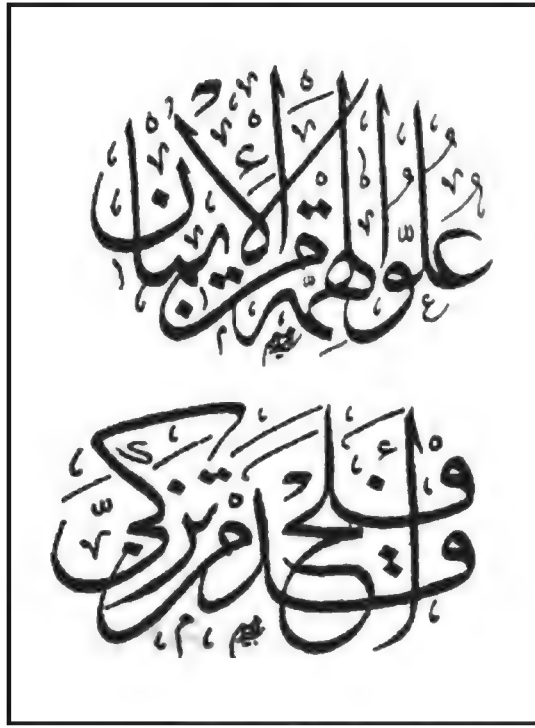 عُلُوُّ الْهِمَّةِ مِنَ الْإِيمَانِ
قَدْ أَفْلَحَ مَنْ تَزَكَّىٰ